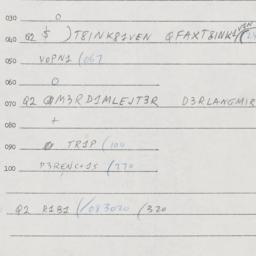 030 O
040 Q2 $ )T8INK81VEN QFAXT8INK1/VEN
050 VOPN1 (067
060 O
070 Q2 M3RD1MLEJT3R D3RLANGMIR
080 +
090 TR1P (100
100 P3RENC+1S (770
Q2 R1B1 (/083020 (320